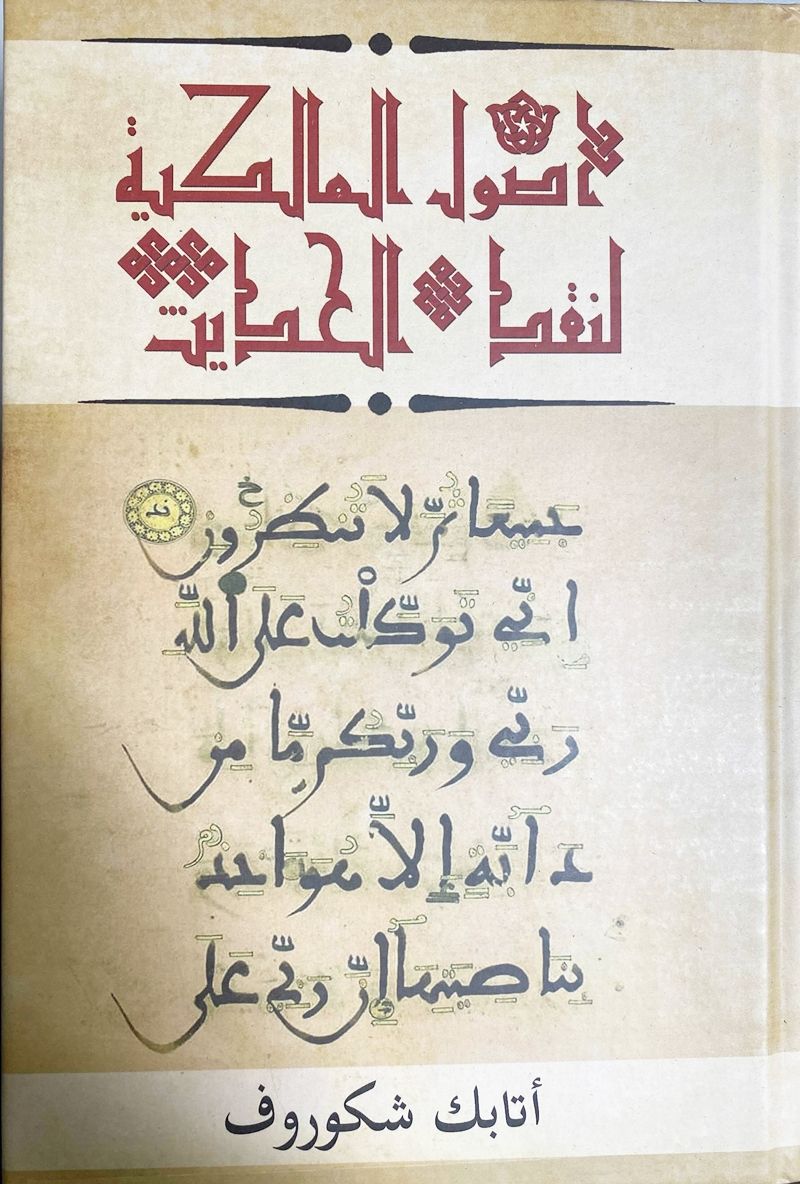 أصول المالكية
لنقد الحديث
جَمِيعًا ثُمَّ لَا تُنظِرُونِ
إِنِّي تَوَكَّلْتُ عَلَى اللَّهِ
رَبِّي وَرَبِّكُم مَّا مِن
دَآبَّةٍ إِلَّا هُوَ آخِذٌ
بِنَاصِيَتِهَآ إِنَّ رَبِّي عَلَى
أتابك شكوروف